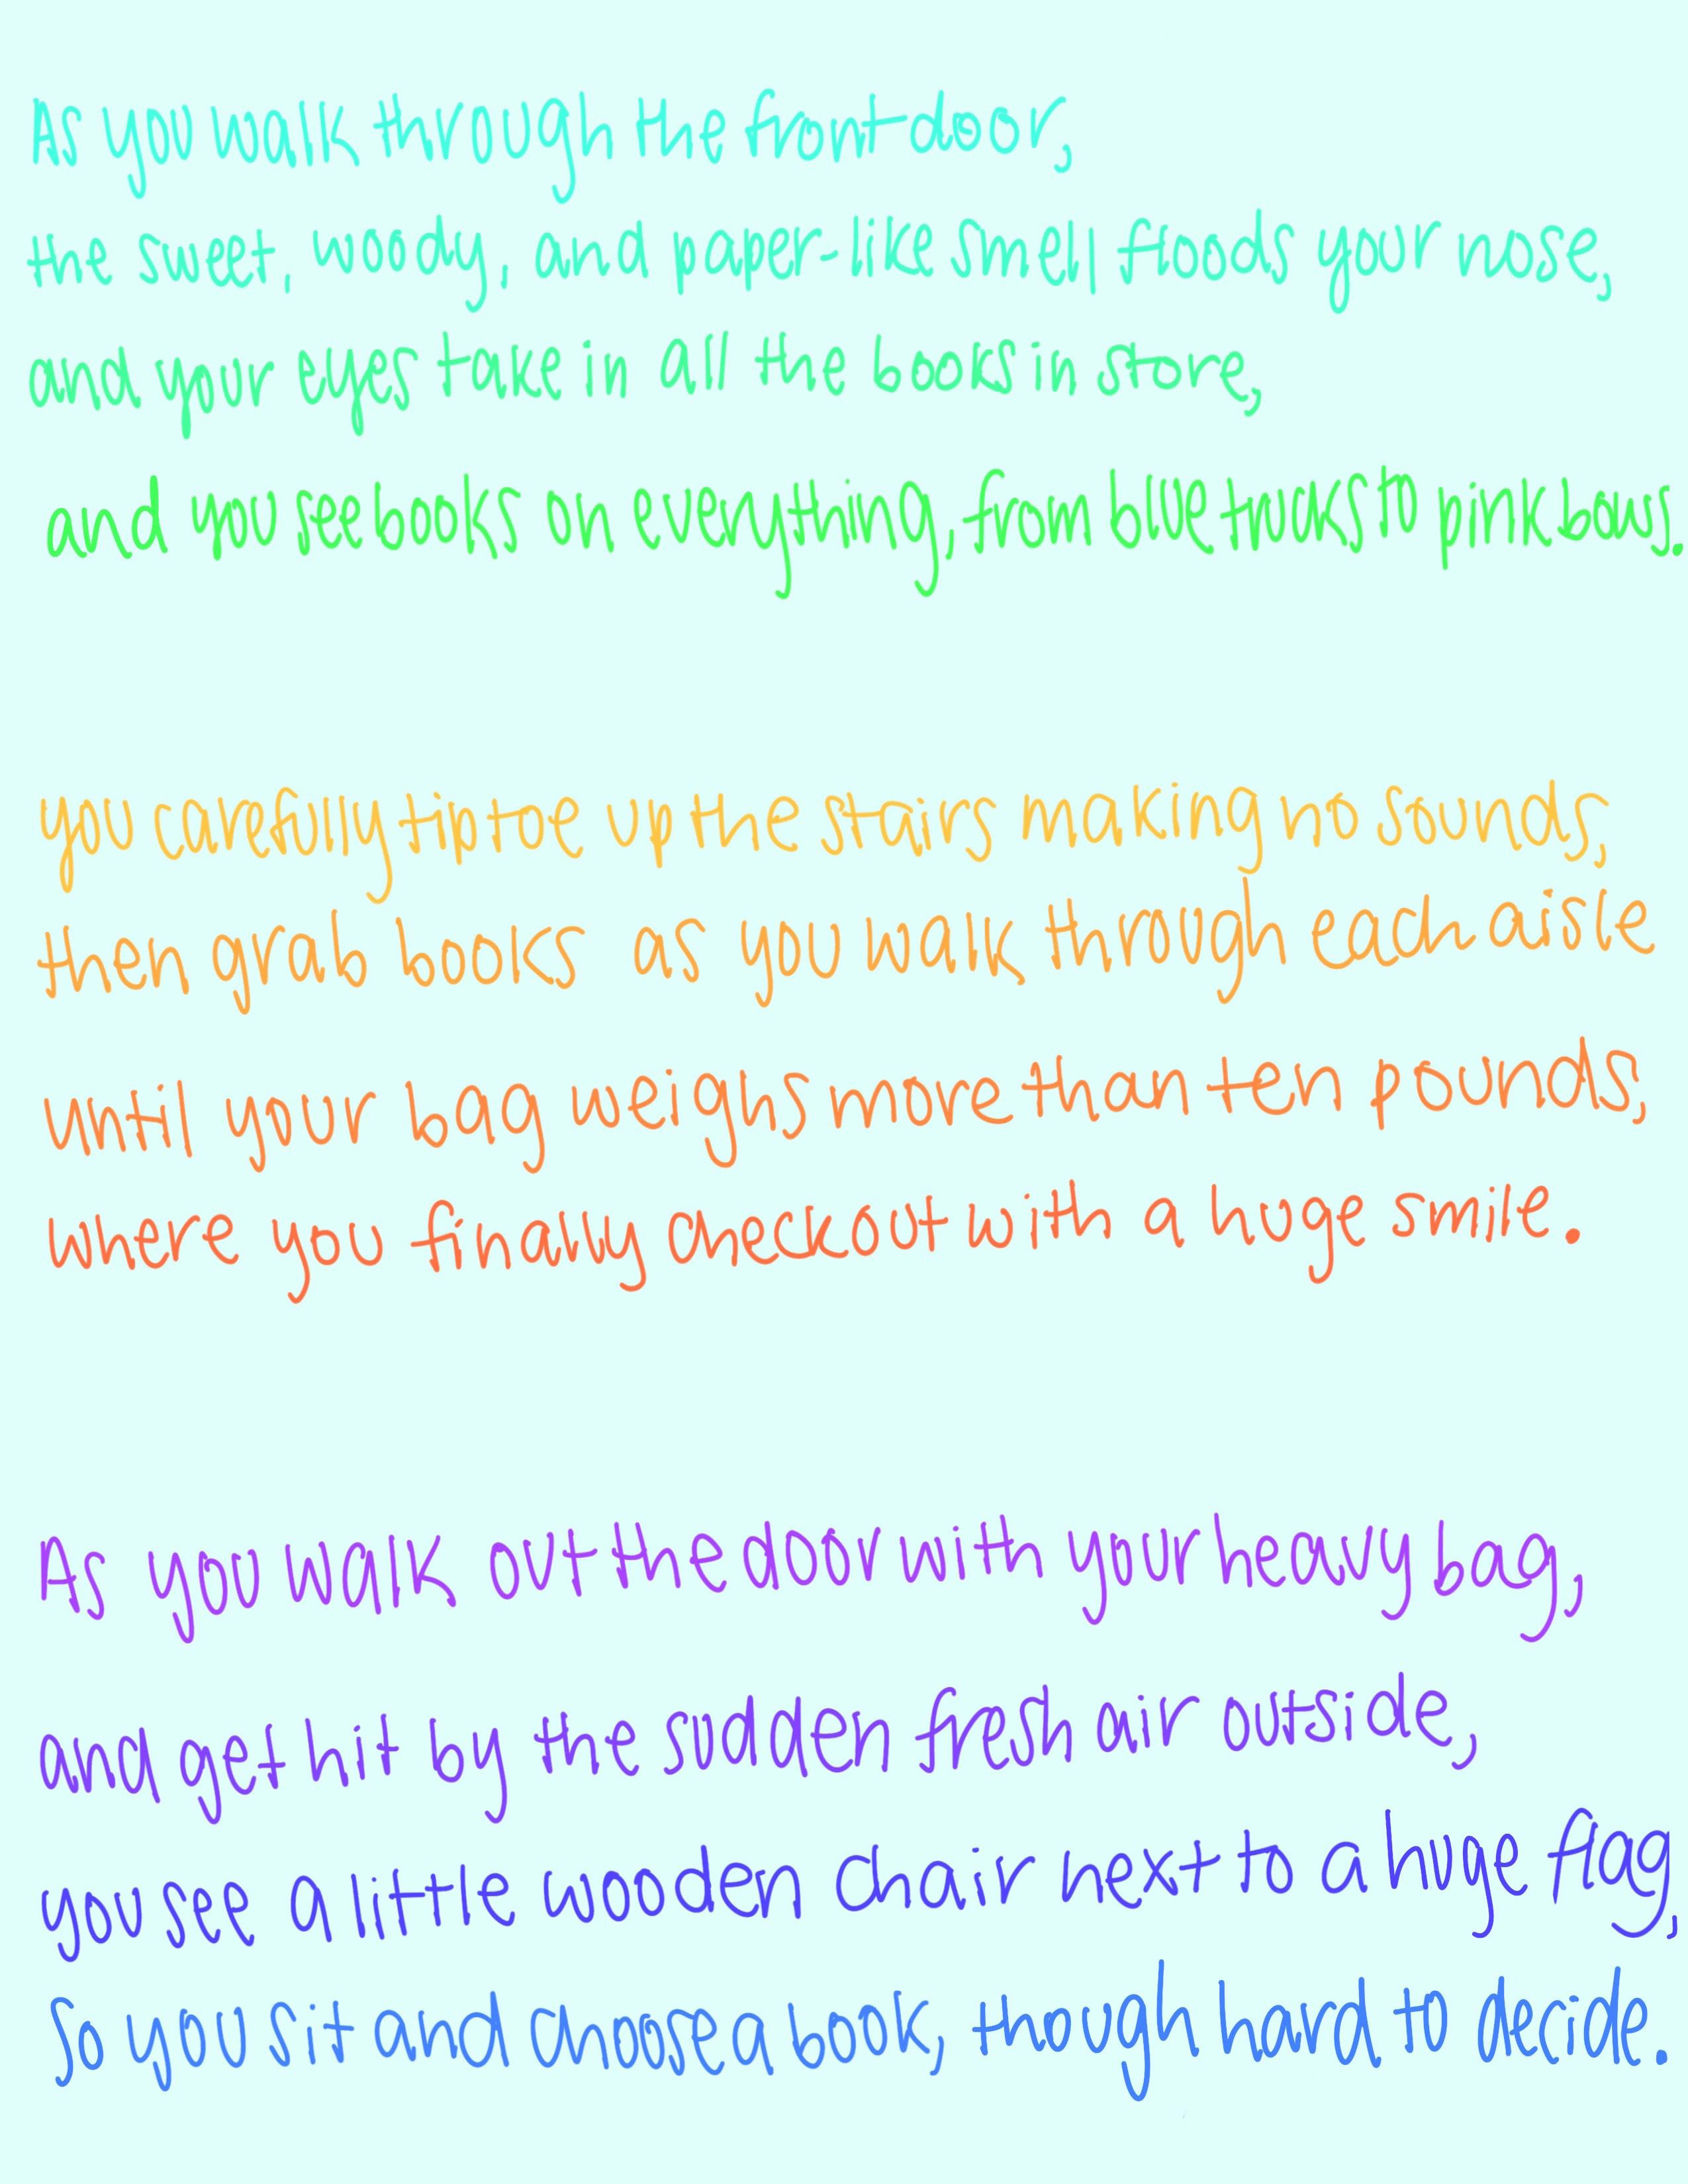 As you walk through the front door,
the sweet, woody, and paper-like smell floods your nose,
and your eyes take in all the books in store,
and you see books on everything, from blue trucks to pink bows.
you carefully tiptoe up the stairs making no sounds,
then grab books as you walk through each aisle
until your bag weighs more than ten pounds,
where you finally check out with a huge smile.
As you walk out the door with your heavy bag,
and get hit by the sudden fresh air outside,
you see a little wooden chair next to a huge flag,
so you sit and choose a book, though hard to decide.